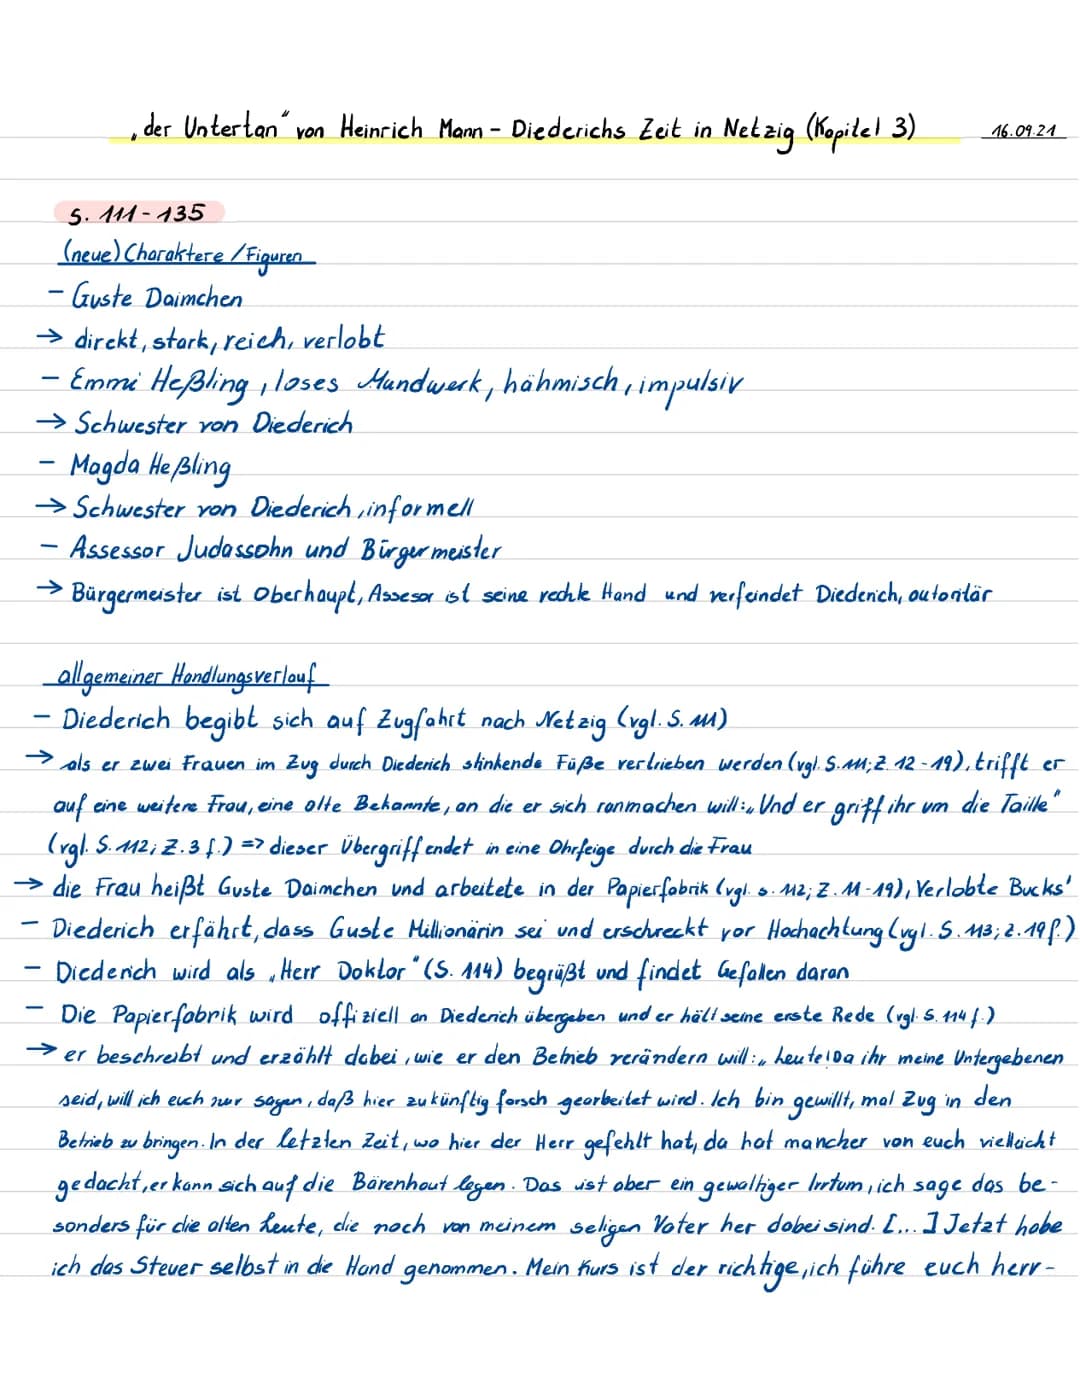 „der Untertan“ von Heinrich Mann - Diederichs Zeit in Netzig (Kapitel 3) 16.09.21
S. 111-135
(neue) Charaktere / Figuren
- Guste Daimchen
→ direkt, stark, reich, verlobt
- Emmi Heßling, loses Mundwerk, hähmisch, impulsiv
→ Schwester von Diederich
- Magda Heßling
→ Schwester von Diederich, informell
- Assessor Judassohn und Bürgermeister
→ Bürgermeister ist Oberhaupt, Assesor ist seine rechte Hand und verfeindet Diederich, autoritär
allgemeiner Handlungsverlauf
- Diederich begibt sich auf Zugfahrt nach Netzig (vgl. S. 111)
→ als er zwei Frauen im Zug durch Diederich stinkende Füße vertrieben werden (vgl. S. 111; Z. 12-19), trifft er
auf eine weitere Frau, eine alte Bekannte, an die er sich ranmachen will: „Und er griff ihr um die Taille“
(vgl. S. 112; Z. 3 f.) => dieser Übergriff endet in eine Ohrfeige durch die Frau
→ die Frau heißt Guste Daimchen und arbeitete in der Papierfabrik (vgl. S. 112; Z. 11-19), Verlobte Bucks'
- Diederich erfährt, dass Guste Millionärin sei und erschreckt vor Hochachtung (vgl. S. 113; Z. 19 f.)
- Diederich wird als „Herr Doktor“ (S. 114) begrüßt und findet Gefallen daran
- Die Papierfabrik wird offiziell an Diederich übergeben und er hält seine erste Rede (vgl. S. 114 f.)
→ er beschreibt und erzählt dabei, wie er den Betrieb verändern will: „Leute! Da ihr meine Untergebenen
seid, will ich euch nur sagen, daß hier zukünftig forsch gearbeitet wird. Ich bin gewillt, mal Zug in den
Betrieb zu bringen. In der letzten Zeit, wo hier der Herr gefehlt hat, da hat mancher von euch vielleicht
gedacht, er kann sich auf die Bärenhaut legen. Das ist aber ein gewaltiger Irrtum, ich sage das be-
sonders für die alten Leute, die noch von meinem seligen Vater her dabei sind. [...] Jetzt habe
ich das Steuer selbst in die Hand genommen. Mein Kurs ist der richtige, ich führe euch herr-